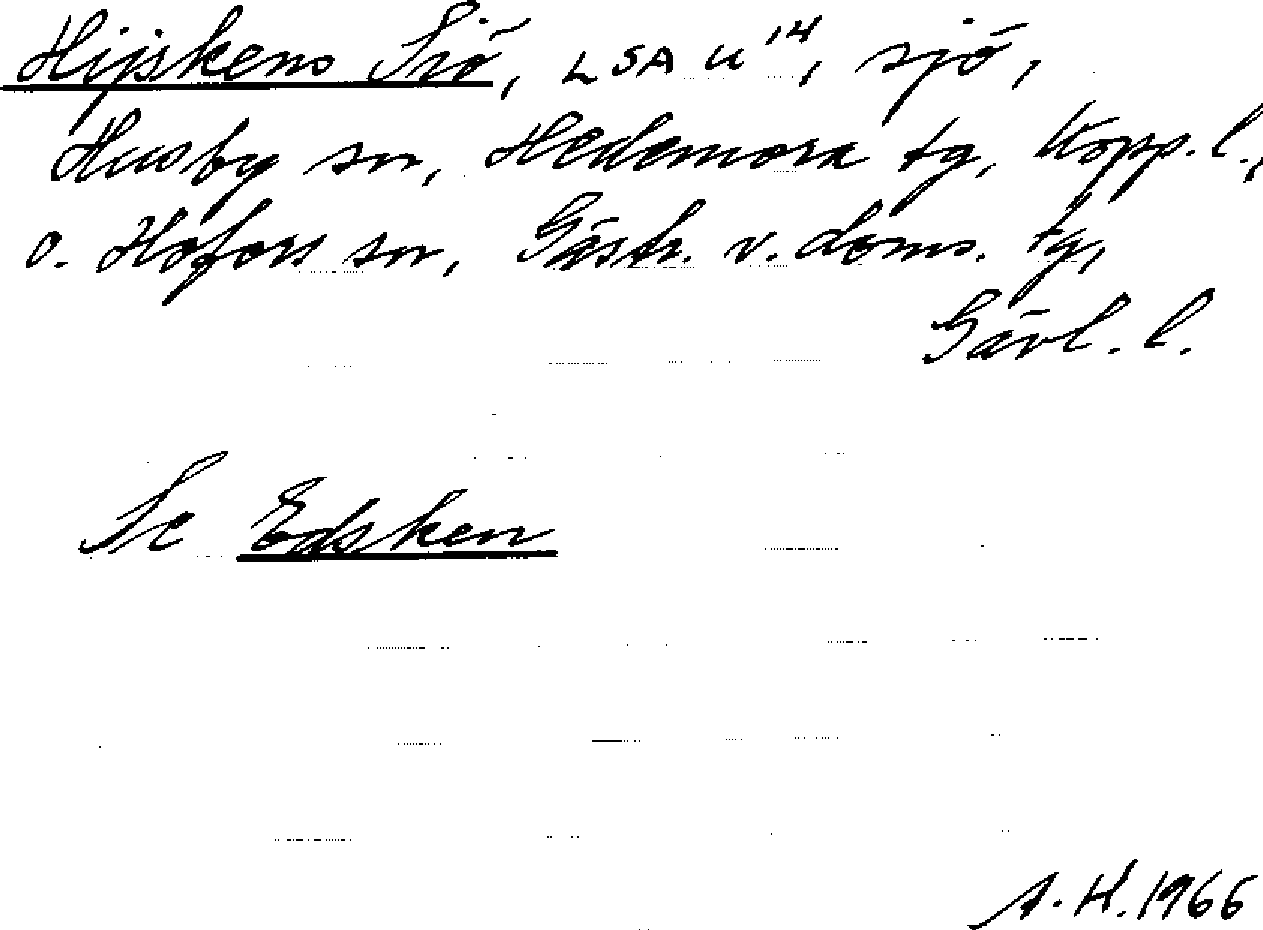 Hijskens Siö, LSA U14, sjö,
Husby sn, Hedemora tg, Kopp. l.,
o. Hofors sn, Gästr. v. doms. tg,
Gävl. l.
Se Edsken
A. H. 1966